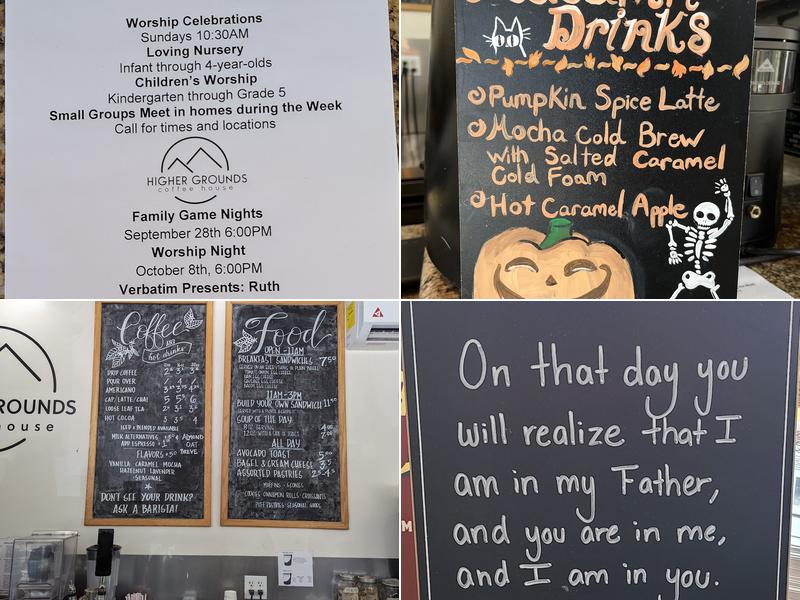 Worship Celebrations
Sundays 10:30AM
Loving Nursery
Infant through 4-year-olds
Children's Worship
Kindergarten through Grade 5
Small Groups Meet in homes during the Week
Call for times and locations
HIGHER GROUNDS
coffee house
Family Game Nights
September 28th 6:00PM
Worship Night
October 8th, 6:00PM
Verbatim Presents: Ruth
Drinks
Pumpkin Spice Latte
Mocha Cold Brew
with Salted Caramel
Cold Foam
Hot Caramel Apple
GROUNDS
house
Coffee
AND
hot drinks
DRIP COFFEE
POUR OVER
AMERICANO
CAP/LATTE/CHAI
LOOSE LEAF TEA
HOT COCOA
ICED & BLENDED AVAILABLE
MILK ALTERNATIVES
ALMOND
OAT
BREVE
ADD ESPRESSO
FLAVORS +50
VANILLA CARAMEL MOCHA
HAZELNUT LAVENDER
SEASONAL
DON'T SEE YOUR DRINK?
ASK A BARISTA!
Food
OPEN-11AM
BREAKFAST SANDWICHES 7.50
11AM-3PM
BUILD YOUR OWN SANDWICH
SOUP OF THE DAY
ALL DAY
AVOCADO TOAST
BAGEL & CREAM CHEESE
ASSORTED PASTRIES
MUFFINS SCONES
COOKIES CINNAMON ROLLS CROISSANTS
PUFF PASTRIES SEASONAL GOODS
On that day you
will realize that I
am in my Father,
and you are in me,
and I am in you.